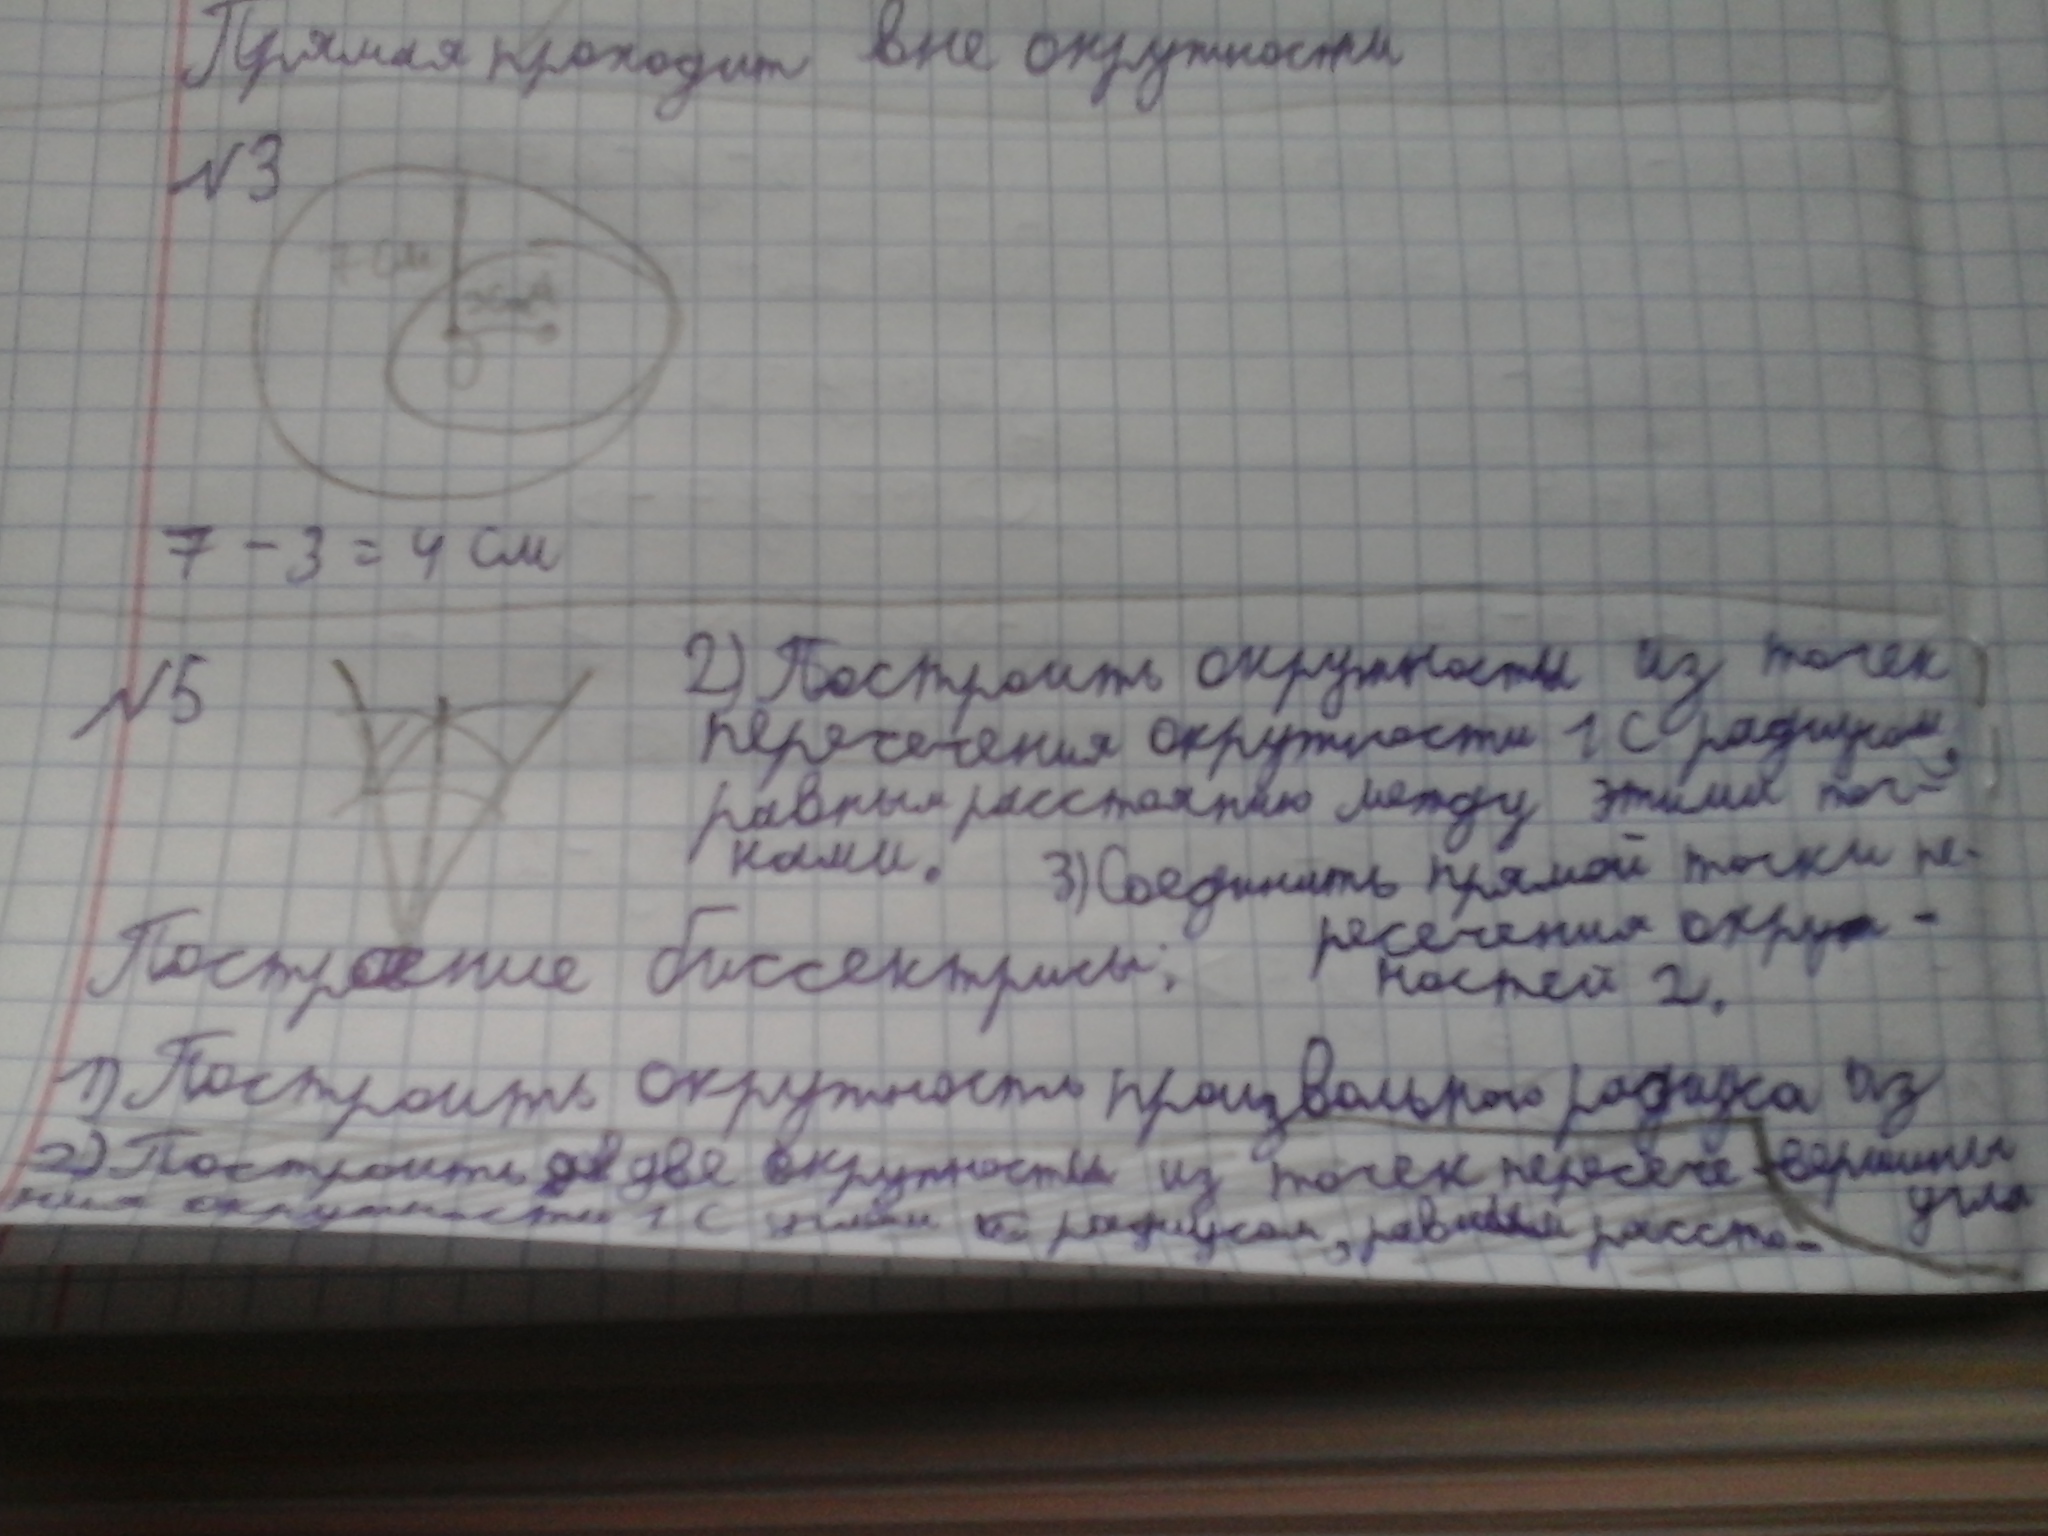 Прямая проходит вне окружности
№3
7 см
3см
O
7 - 3 = 4 см
№5
2) Построить окружности из точек
пересечения окружности 1 с радиусом,
равным расстоянию между этими точ-
ками.
3) Соединить прямой точки пе-
ресечения окруж-
ностей 2.
Построение биссектрисы:
1) Построить окружность произвольного радиуса из
вершины
угла
2) Построить две окружности из точек пересече-
ния окружности 1 с радиусом, равным расстоя-